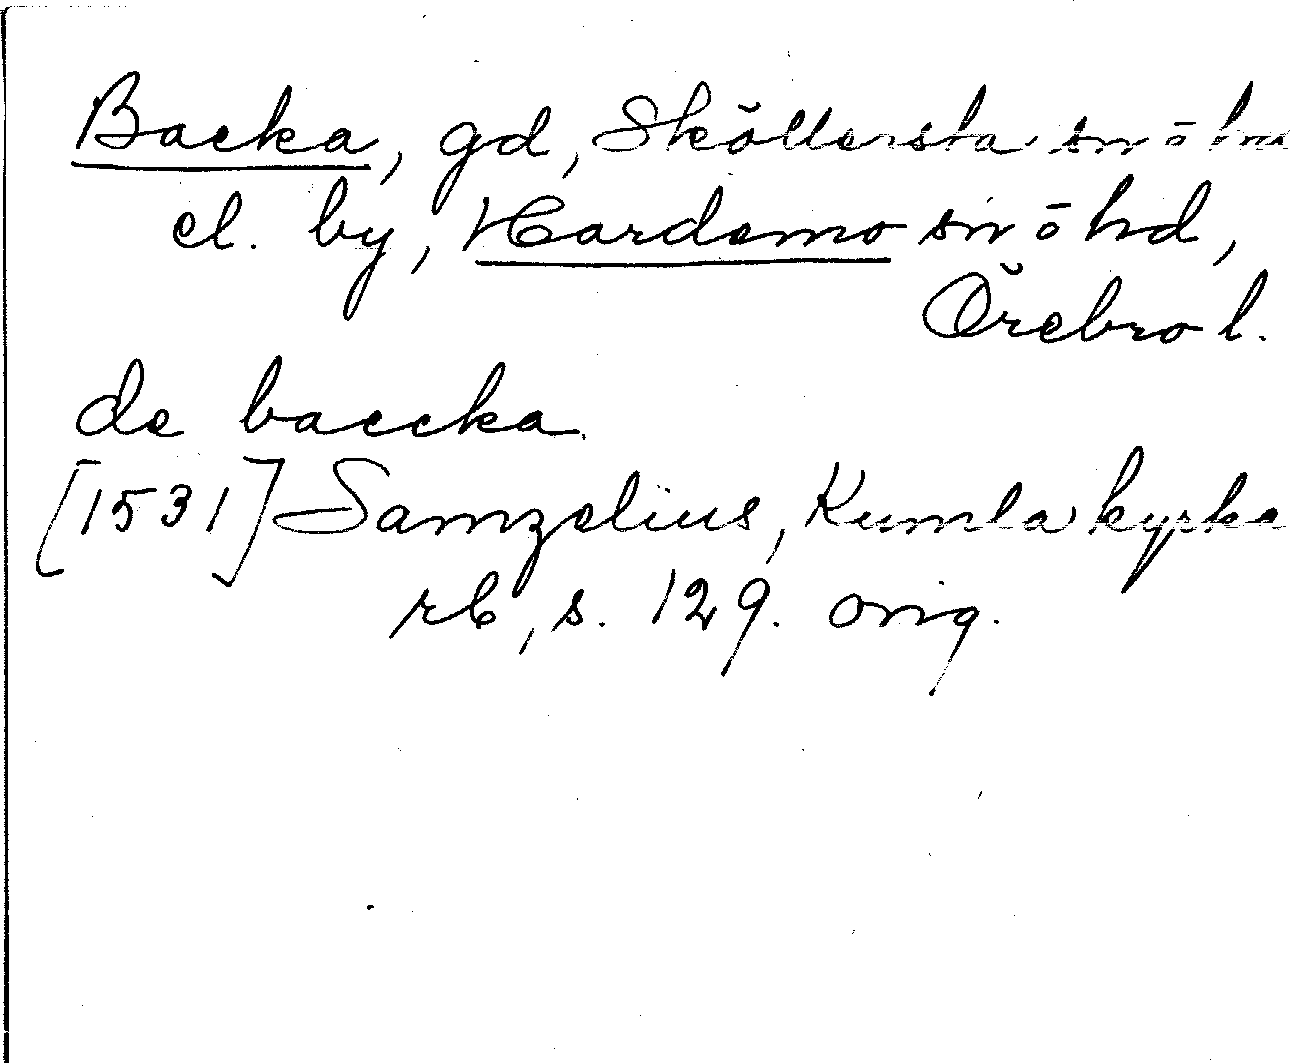 Backa, gd, Sköllersta sn ō hd
el. by, Hardemo sn ō hd,
Örebro l.
de baccka.
[1531] Samzelius, Kumla kyrka
rb, s. 129. orig.